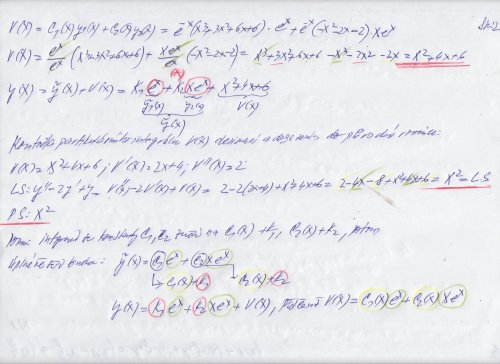 V(x) = C₁(x) y₁(x) + C₂(x) y₂(x) = e⁻ˣ(x³+3x²+6x+6) · eˣ + e⁻ˣ(-x²-2x-2) · xeˣ
V(x) = eˣ/eˣ (x³+3x²+6x+6) + xeˣ/eˣ · (-x²-2x-2) = x³+3x²+6x+6 - x³ - 2x² - 2x = x²+4x+6
y(x) = ỹ(x) + V(x) = K₁eˣ + K₂xeˣ + x²+4x+6
y₁(x) y₂(x) V(x)
ỹ(x)
Kontrola partikulárního integrálu V(x) derivací a dosazením do původní rovnice:
V(x) = x²+4x+6 ; V'(x) = 2x+4 ; V''(x) = 2
LS: y''-2y'+y = V''(x) - 2V'(x) + V(x) = 2-2(2x+4)+x²+4x+6 = 2-4x-8+x²+4x+6 = x² = LS
PS: x²
integraci se konstanty C₁, C₂ na C₁(x) + K₁, C₂(x) + K₂, potom
ỹ(x) = C₁eˣ + C₂xeˣ
C₁(x)+K₁ C₂(x)+K₂
y(x) = K₁eˣ + K₂xeˣ + V(x), V(x) = C₁(x)eˣ + C₂(x) xeˣ